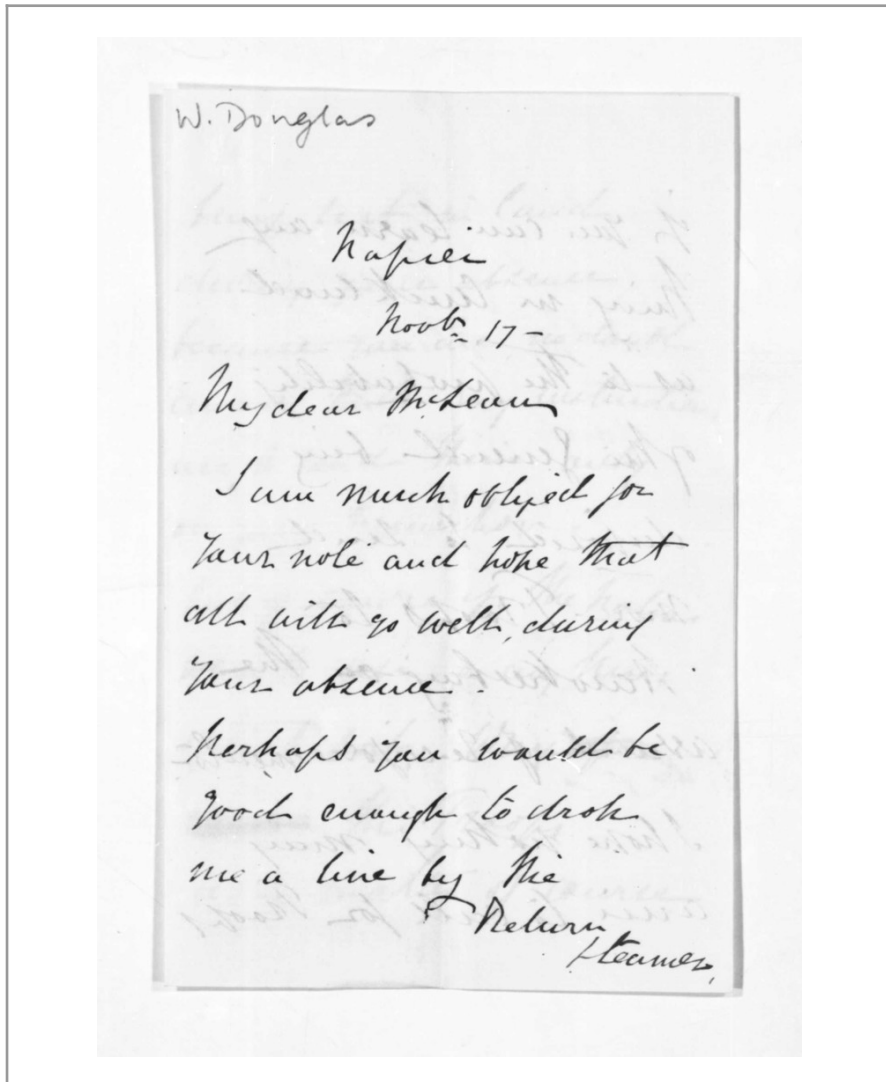 W. Douglas
Napier
Novbr. 17 -
My dear McLean
I am much obliged for
your note and hope that
all will go well, during
your absence.
Perhaps you would be
good enough to drop
me a line by the
Return
Steamer,